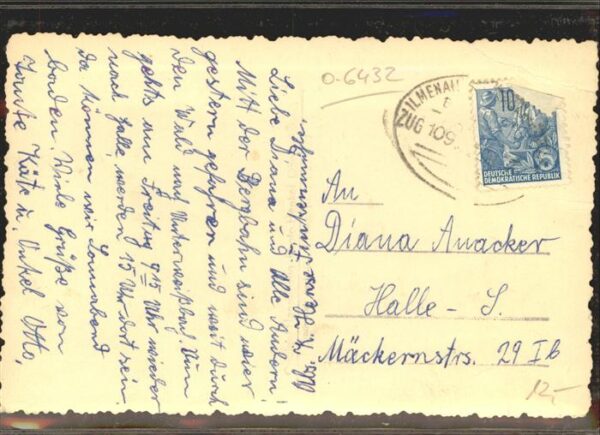 Liebe Diana und Alle Andern!
Mitt der Bergbahn sind wier
gestern gefahren und weit durch
den Wald nach Unterweißbach. Nun
gehts am Freitag 9 15 Uhr wieder
nach Halle, werden 15 Uhr dort sein
da können wir Sonnabend
baden. Viele Grüße von
Tante Käte u. Onkel Otto.
0-6432
ILMENAU
ZUG 109
10
DEUTSCHE
DEMOKRATISCHE REPUBLIK
An
Diana Anacker
Halle - S.
Mäckernstrs. 29 I b
12,-